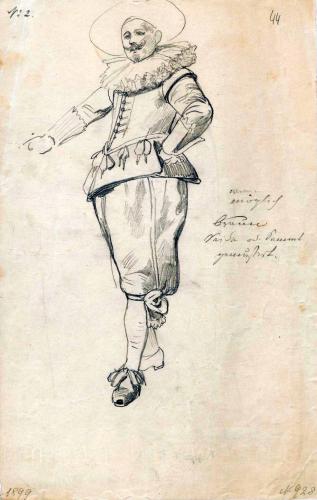 No 2.
44
wenn
möglich
braune
Seide od. Sammt
gemustert.
1899
N 928